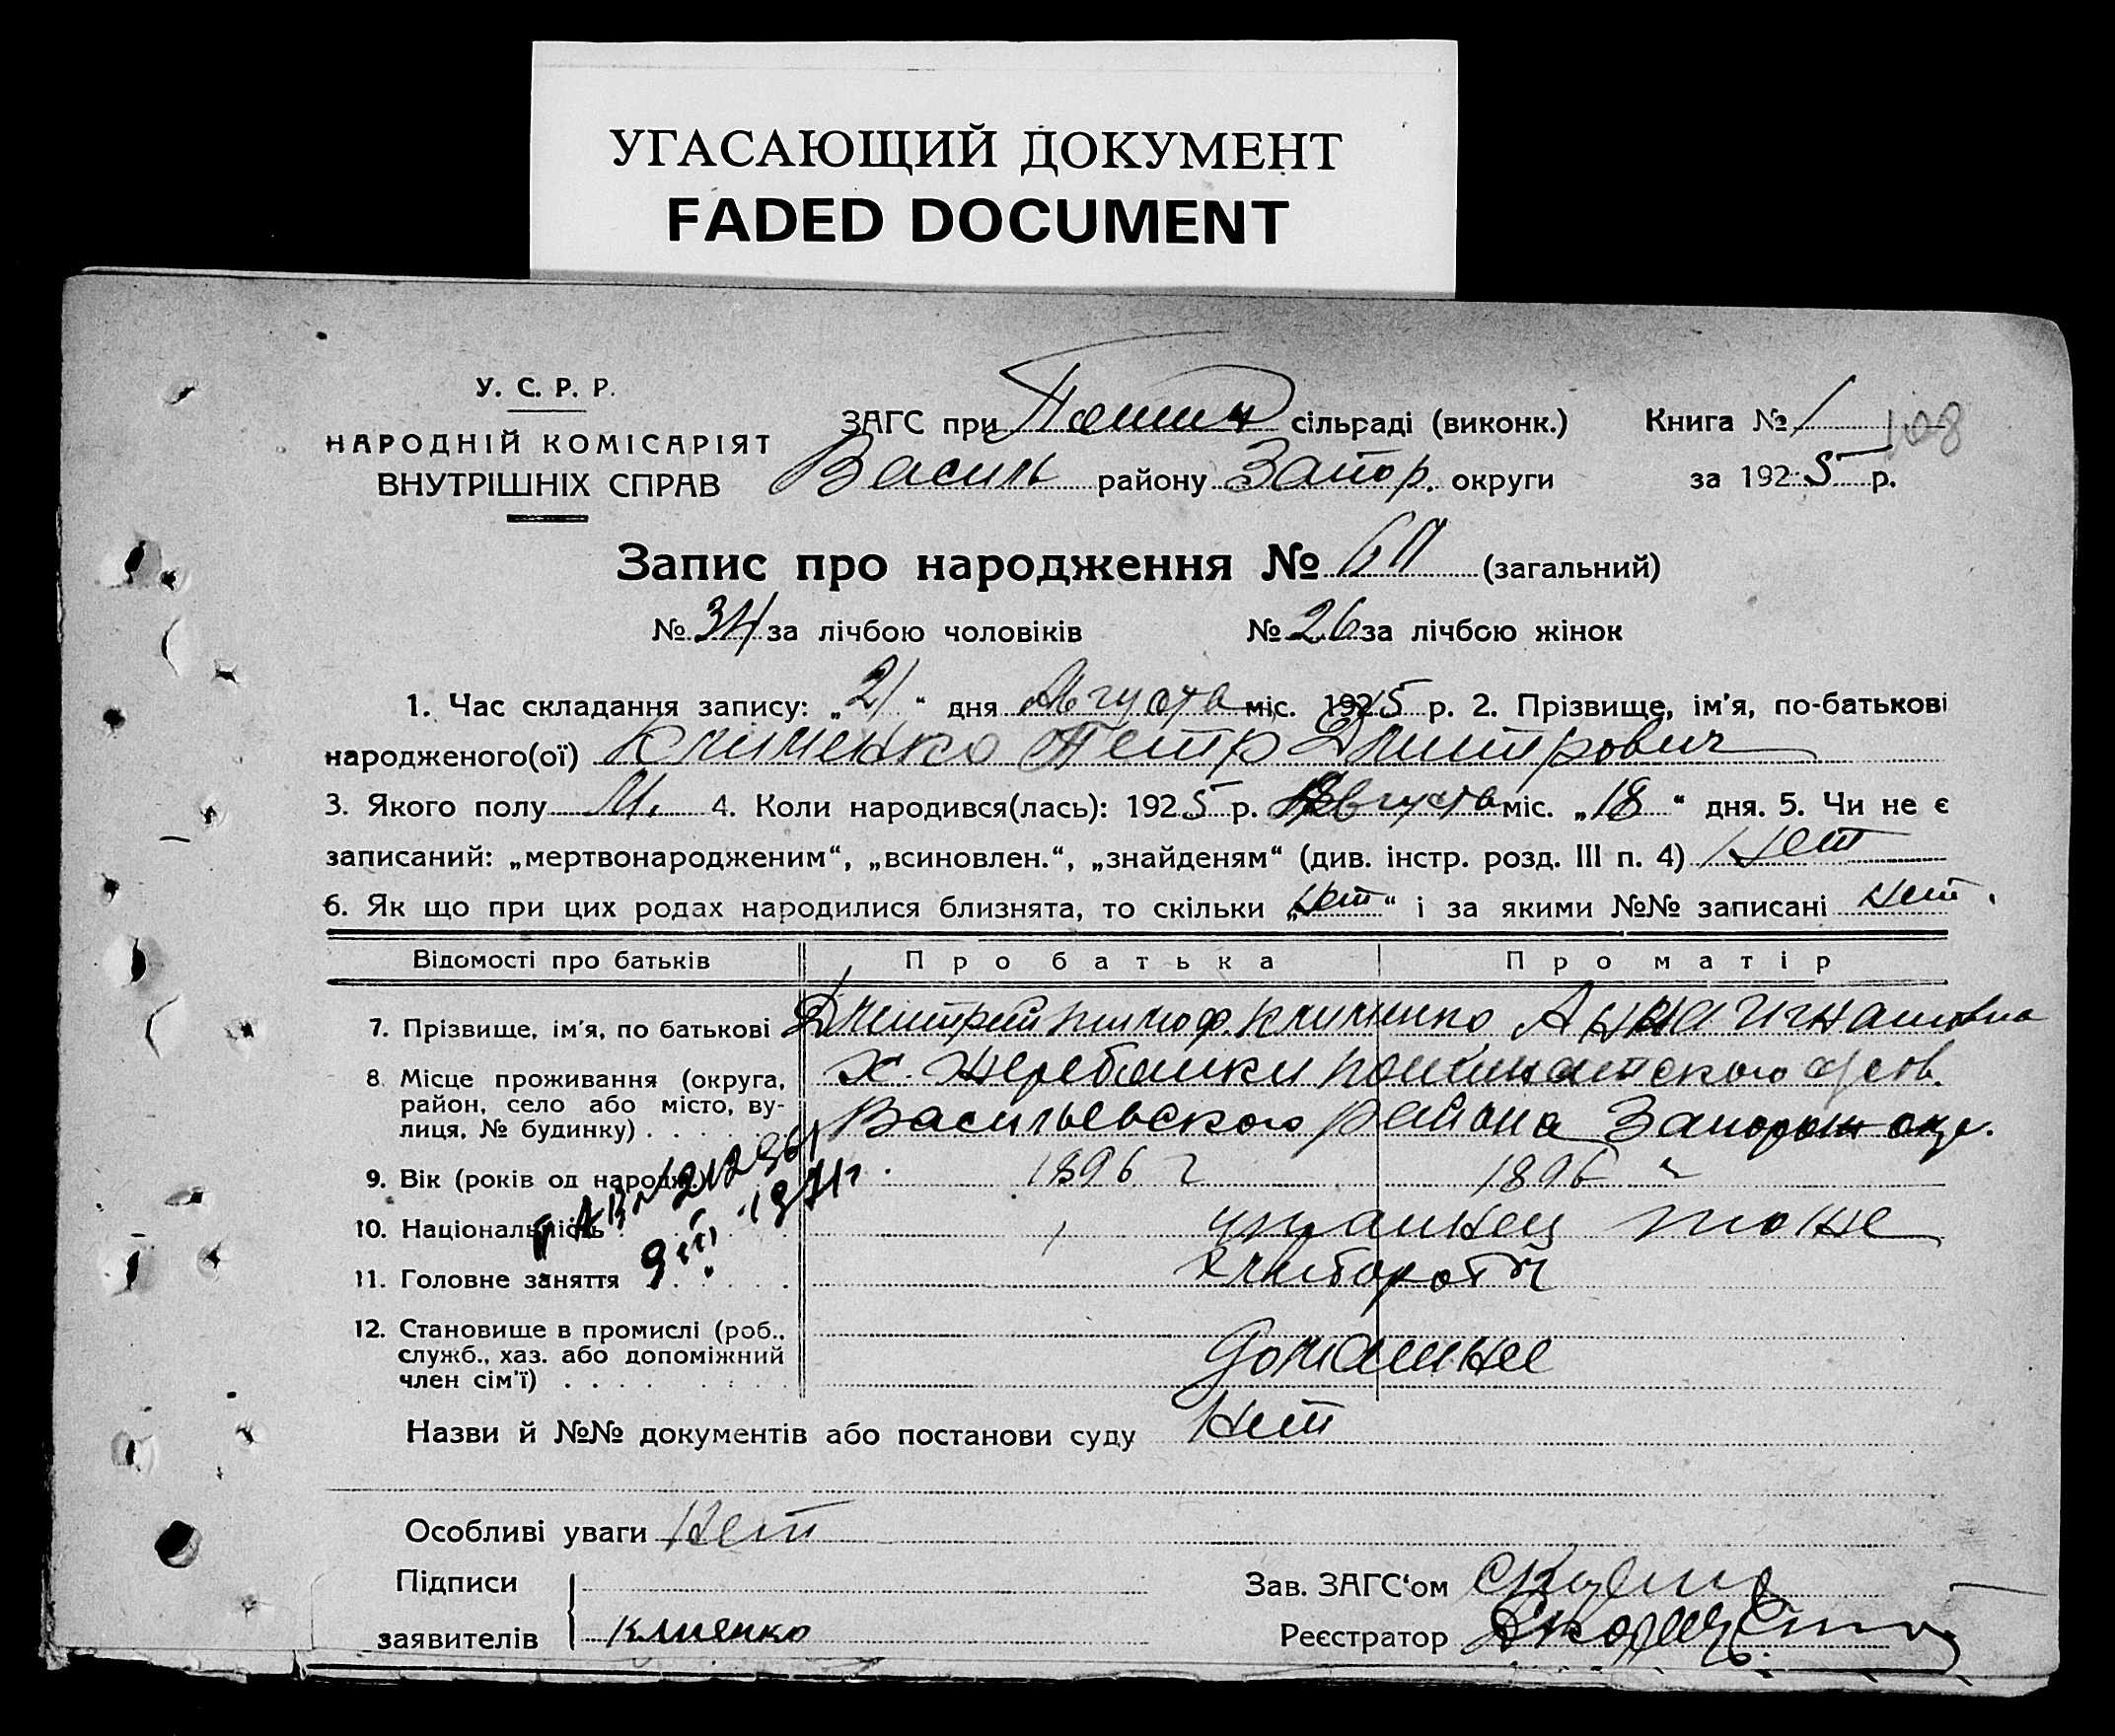 УГАСАЮЩИЙ ДОКУМЕНТ
FADED DOCUMENT
У. С. Р. Р.
НАРОДНІЙ КОМІСАРІЯТ
ВНУТРІШНІХ СПРАВ
ЗАГС при сільраді (виконк.)
Василь району Запор. округи
Книга № 1 108
за 1925 р.
Запис про народження № 60 (загальний)
№ 34 за лічбою чоловіків № 26 за лічбою жінок
1. Час складання запису: „21“ дня Августа міс. 1925 р. 2. Прізвище, ім'я, по-батькові
народженого(ої) Клименко Петр Дмитрович
3. Якого полу М. 4. Коли народився(лась): 1925 р. Августа міс. „18“ дня. 5. Чи не є
записаний: „мертвонародженим“, „всиновлен.“, „знайденям“ (див. інстр. розд. III п. 4) Нет
6. Як що при цих родах народилися близнята, то скільки „Нет“ і за якими №№ записані Нет.
Відомості про батьків Про батька Про матір
7. Прізвище, ім'я, по батькові Дмитрий Тимоф. Клименко Анна Игнатовна
8. Місце проживання (округа, район, село або місто, ву-
лиця, № будинку) х. Жеребянки
Васильевского района Запорож окр.
9. Вік (років од народж. 1896 г 1896 г
10. Національність украинец тоже
11. Головне заняття хлебороб
9 III 1971г
12. Становище в промислі (роб.,
служб., хаз. або допоміжний
член сім'ї) домашнее
Назви й №№ документів або постанови суду Нет
Особливі уваги Нет
Підписи
заявителів Клиенко
Зав. ЗАГС'ом
Реєстратор